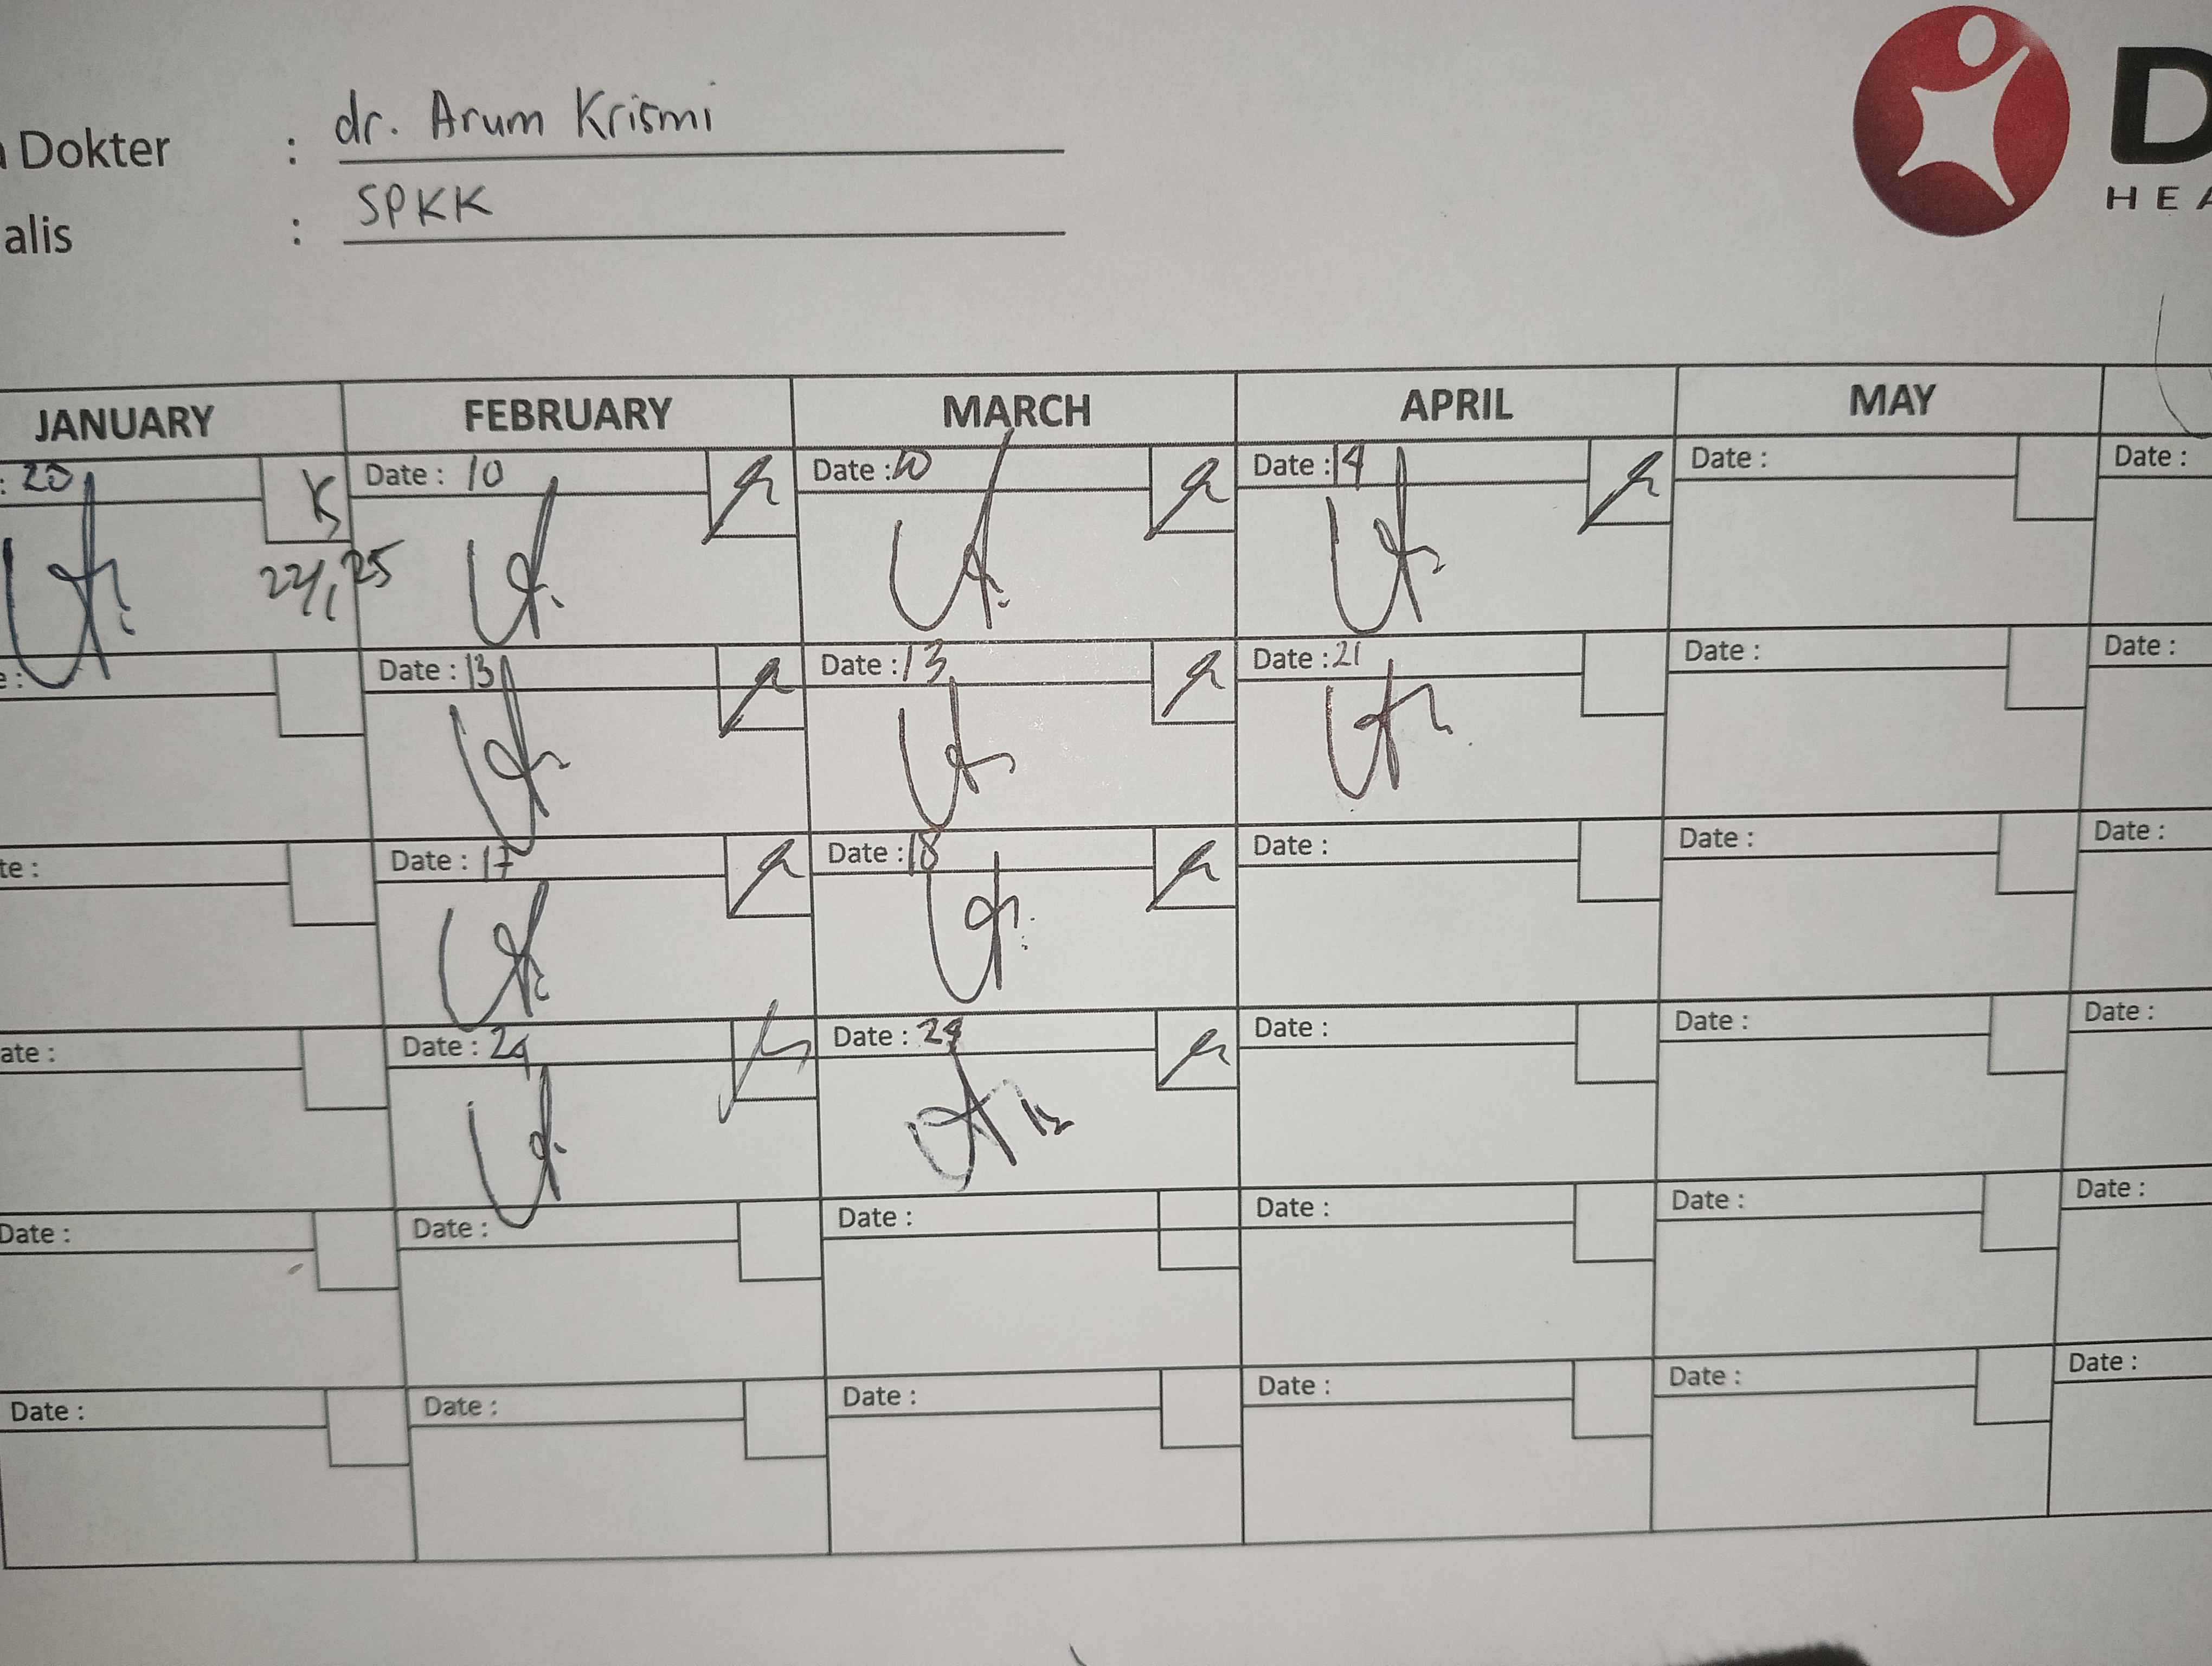 Dokter : dr. Arum Krismi
alis : SPKK
D
HEA
JANUARY FEBRUARY MARCH APRIL MAY
: 20 Date : 10 Date : 10 Date : 14 Date : Date :
22/1 25
e : Date : 13 Date : 13 Date : 21 Date : Date :
te : Date : 17 Date : 18 Date : Date : Date :
ate : Date : 24 Date : 24 Date : Date : Date :
Date : Date : Date : Date : Date : Date :
Date : Date : Date : Date : Date : Date :